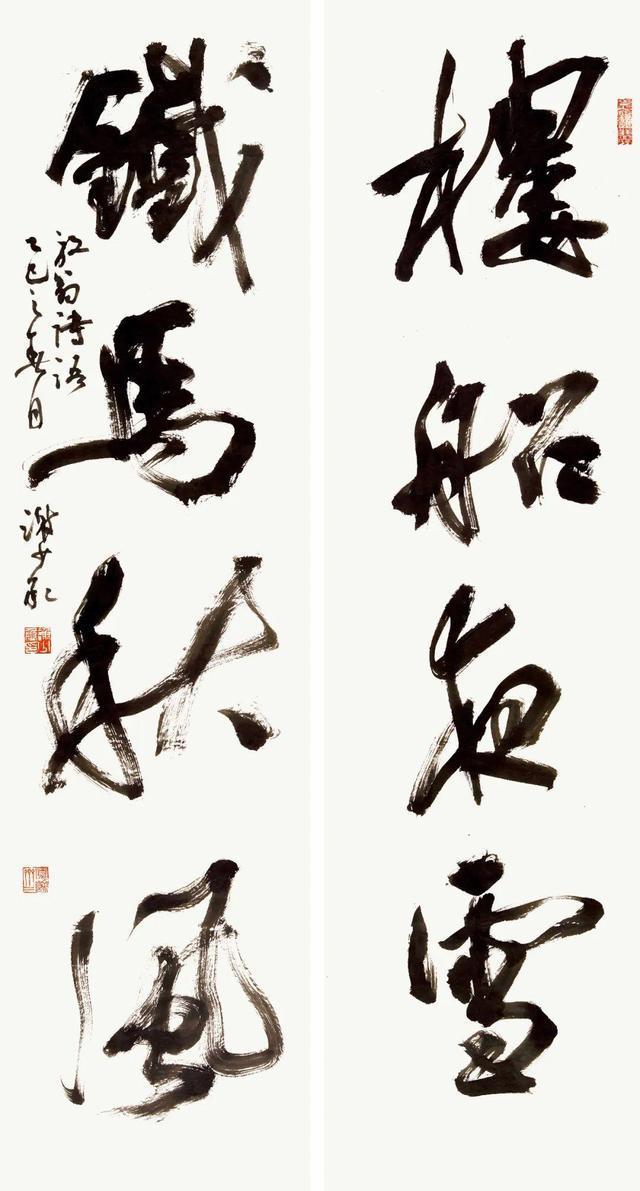 樓船夜雪
鐵馬秋風
放翁詩語
乙巳之春月
謝少承